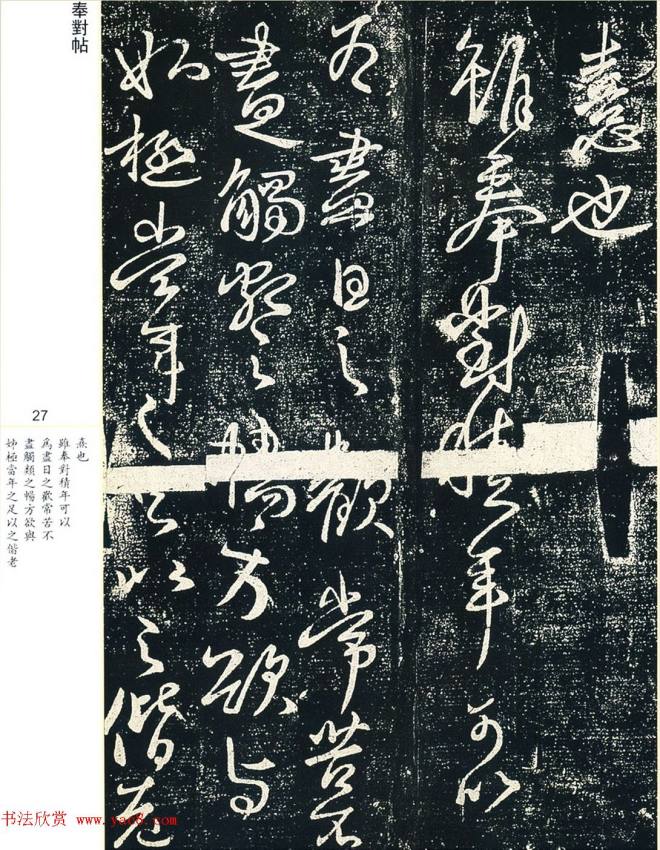 憙也
雖奉對積年可以
爲盡日之歡常苦不
盡觸類之暢方欲與
姊極當年之足以之偕老
奉對帖
27
熹也
雖奉對積年可以
爲盡日之歡常苦不
盡觸類之暢方欲與
姊極當年之足以之偕老
书法欣赏 www.yac8.com